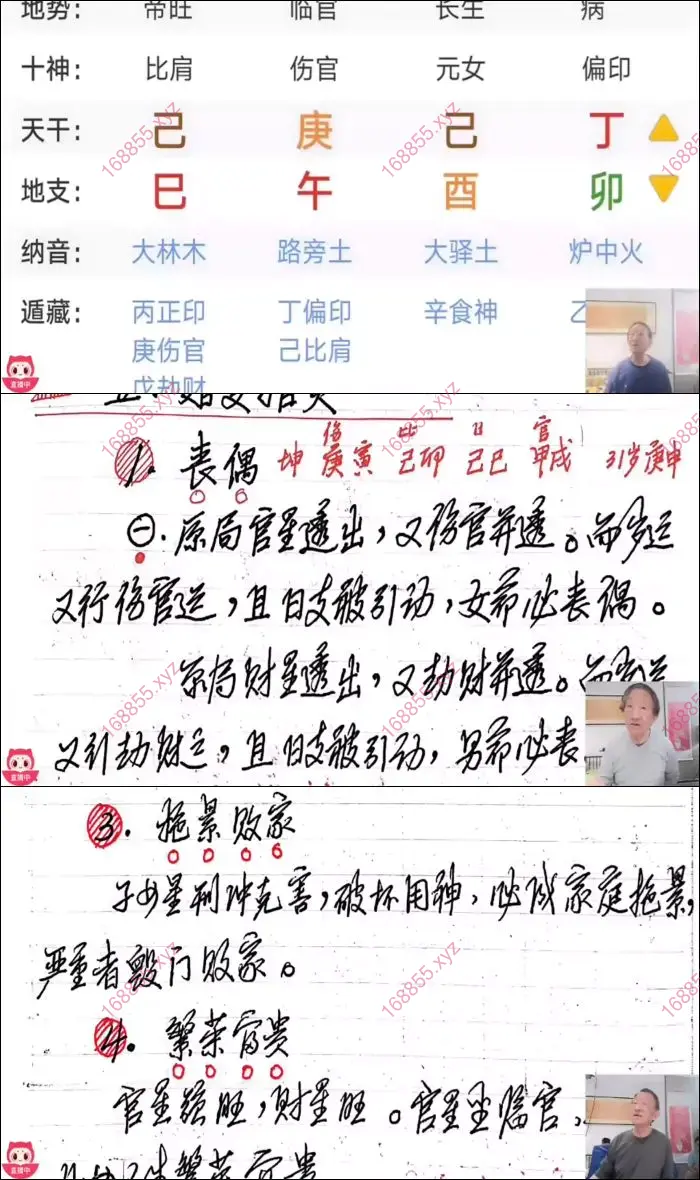 地势: 帝旺 临官 长生 病
十神: 比肩 伤官 元女 偏印
天干: 己 庚 己 丁
地支: 巳 午 酉 卯
纳音: 大林木 路旁土 大驿土 炉中火
遁藏: 丙正印 丁偏印 辛食神 乙
庚伤官 己比肩
戊劫财
直播中
168855.xyz
伤 比 日 官
1. 丧偶 坤 庚寅 己卯 己巳 甲戌 31岁庚申
㊀. 原局官星透出,又伤官并透。而岁运
又行伤官运,且日支被引动,女命必丧偶。
原局财星透出,又劫财并透。而岁运
又行劫财运,且日支被引动,男命必丧
直播中
168855.xyz
3. 拖累败家
子女星刑冲克害,破坏用神,必成家庭拖累,
严重者毁门败家。
4. 繁荣富贵
官星强旺,财星旺。官星坐临官、
繁荣富贵
直播中
168855.xyz